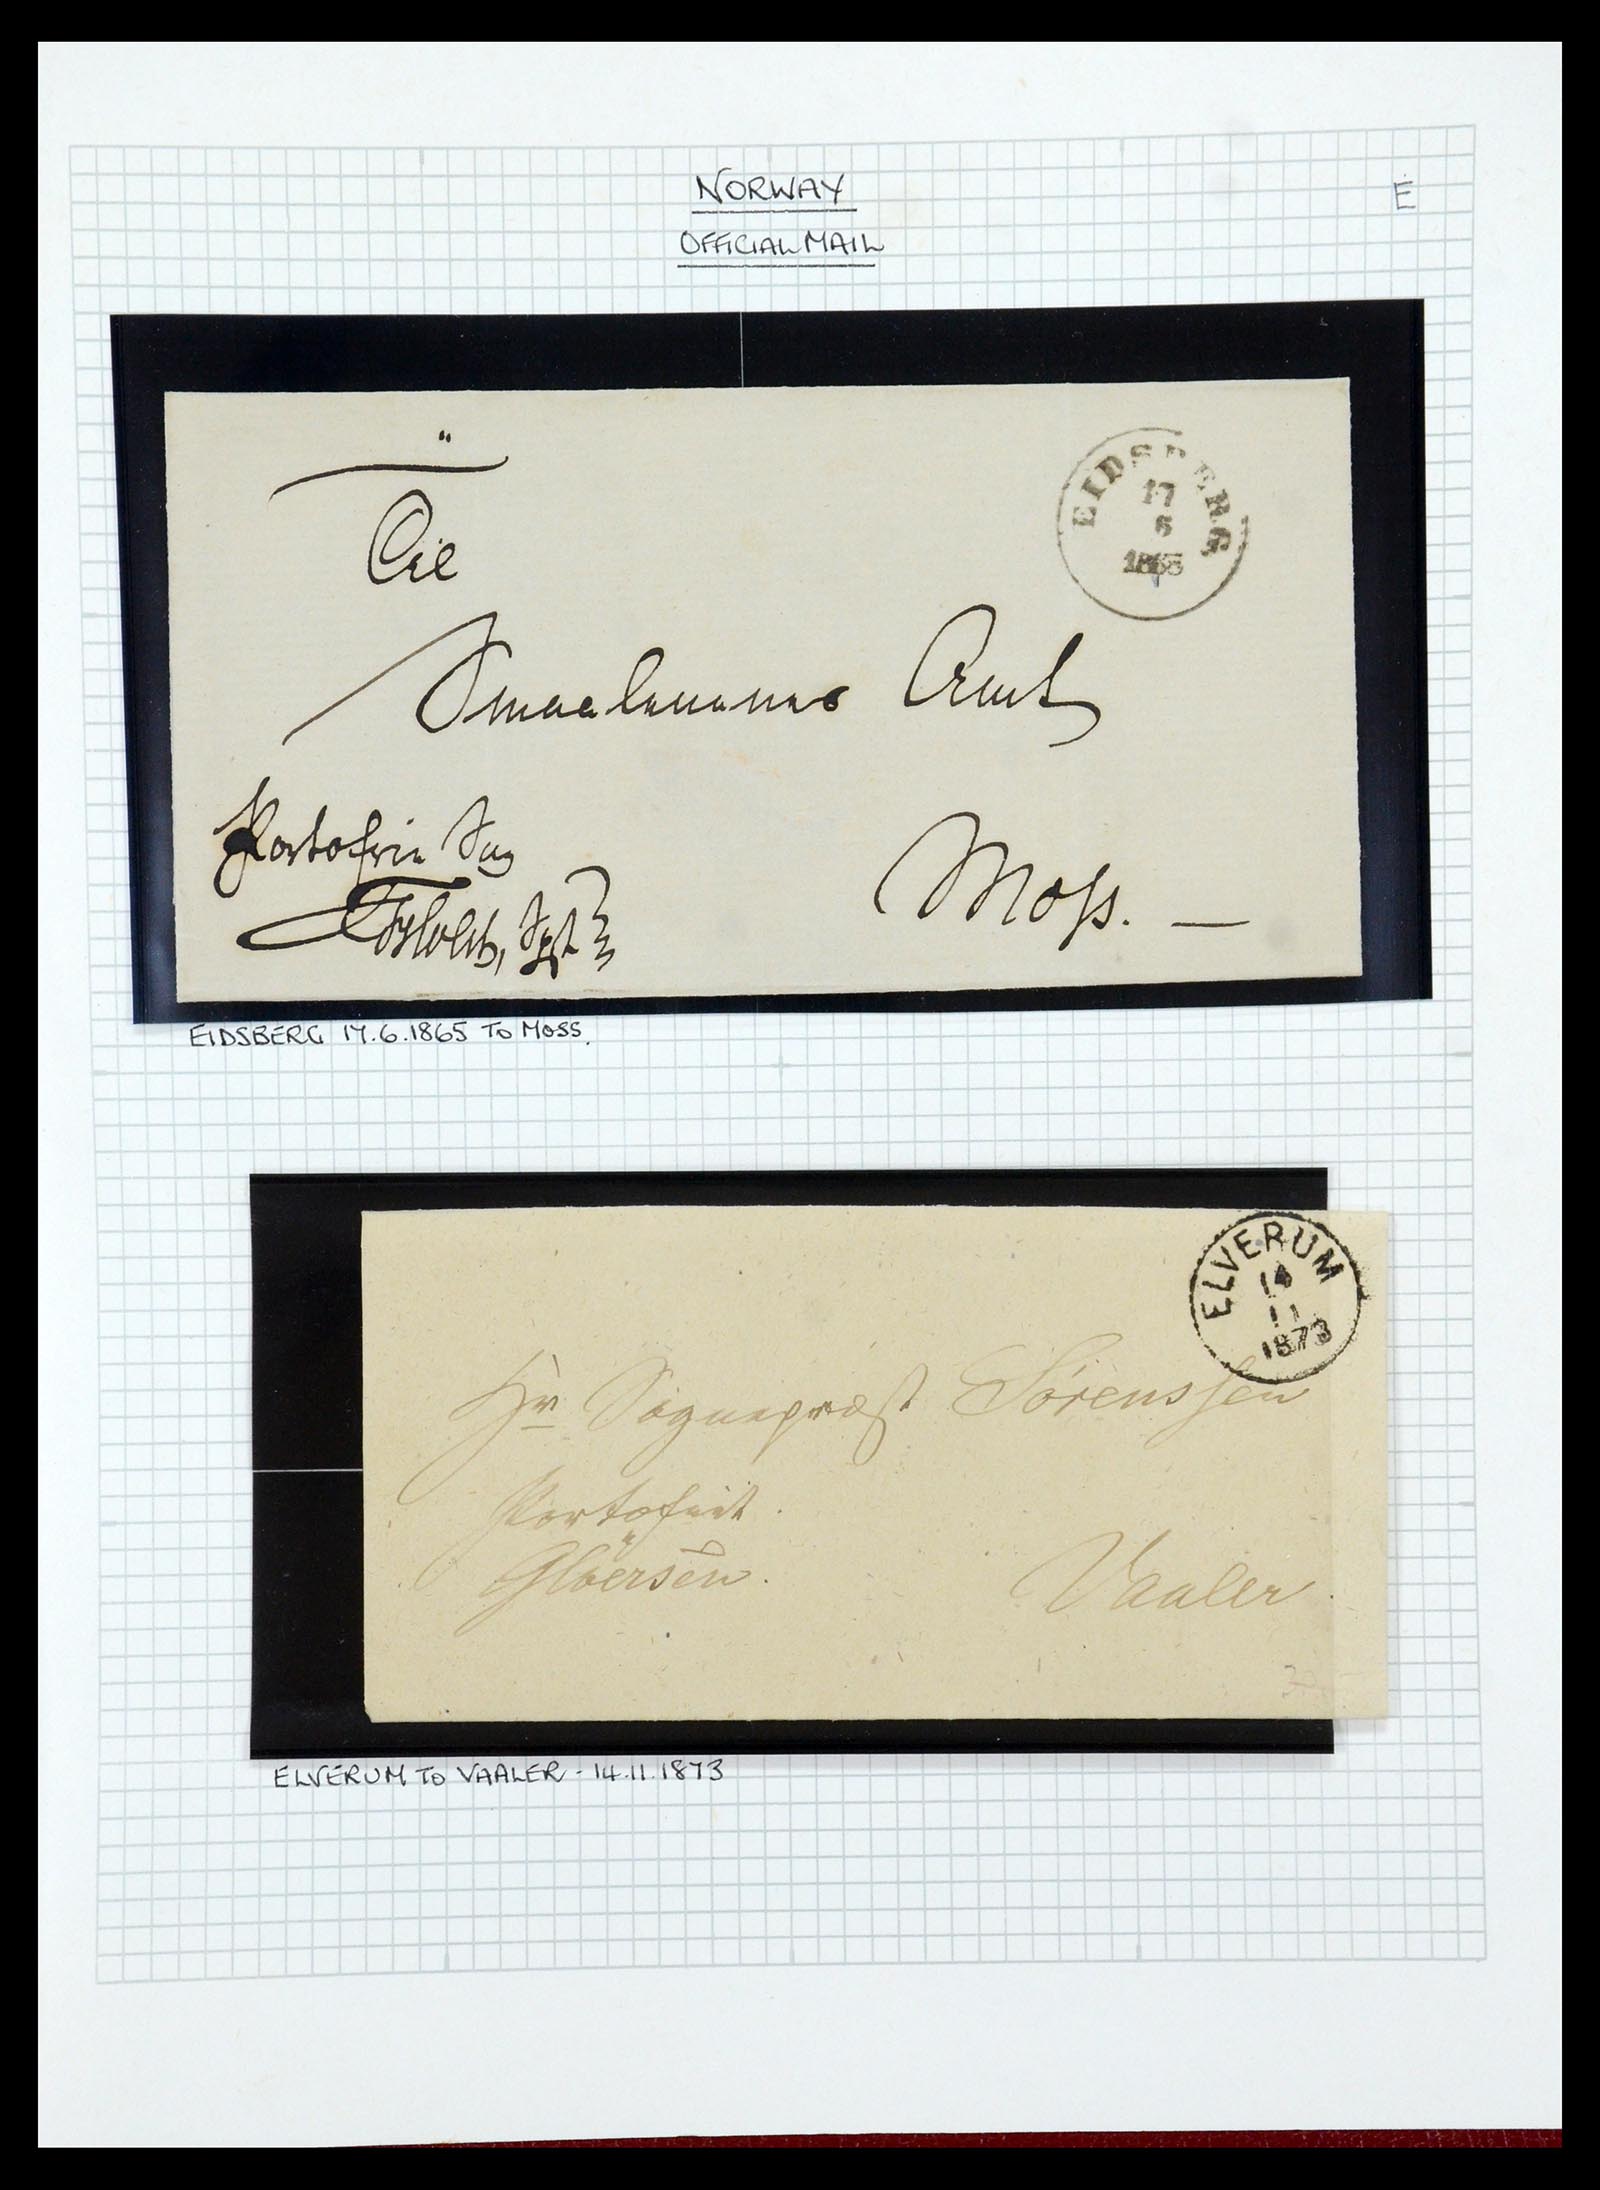 NORWAY
E
OFFICIAL MAIL
EIDSBERG
17
6
1865
Til
Smaalenenes Amt
Portofrie Sag
Moss. —
EIDSBERG 17.6.1865 TO MOSS.
ELVERUM
14
11
1873
Hr Sognepræst Sørenssen
Portofrit.
Gløersen.
Vaaler.
ELVERUM TO VAALER - 14.11.1873